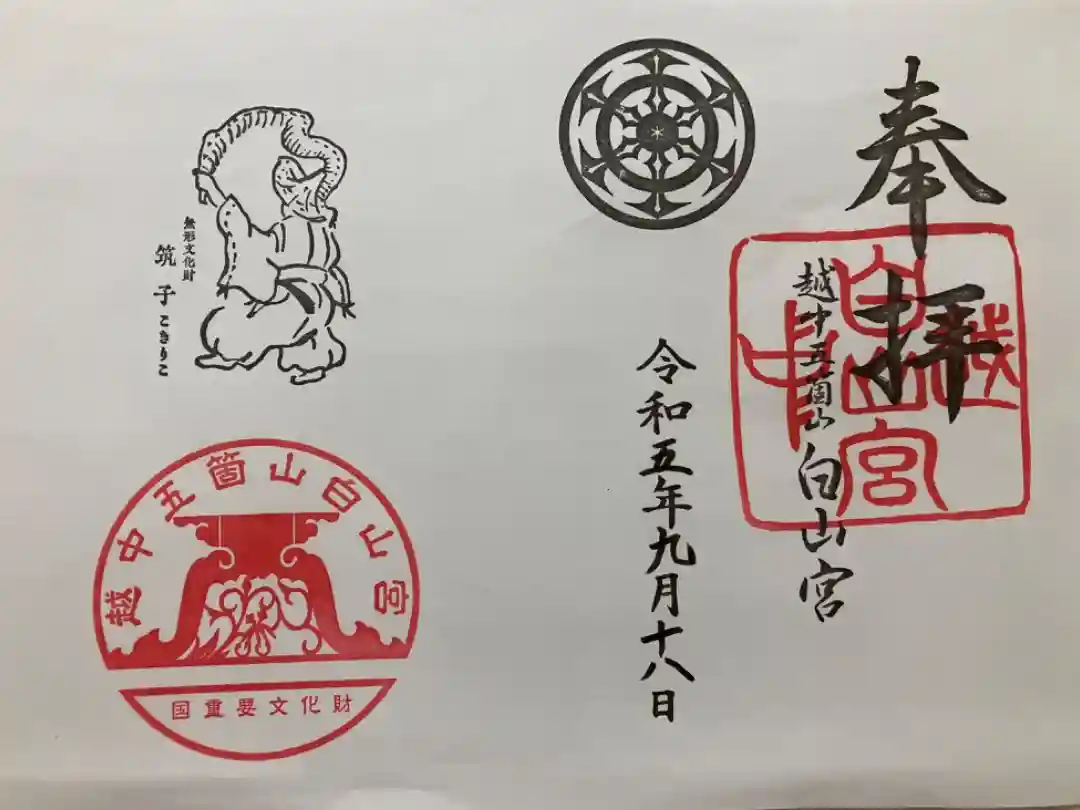 奉拝
越中五箇山白山宮
越中白山宮
令和五年九月十八日
無形文化財
筑子こきりこ
越中五箇山白山宮
国重要文化財